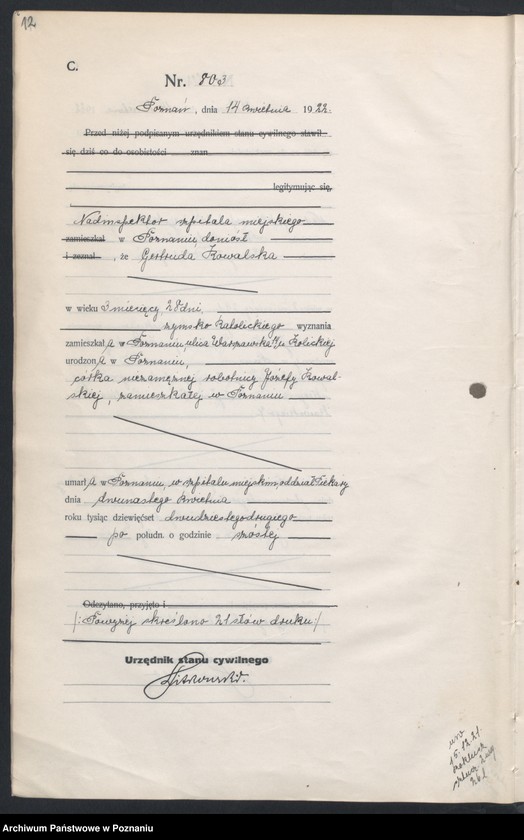 12
C.
Nr. 803
Poznań, dnia 14 kwietnia 1922.
Przed niżej podpisanym urzędnikiem stanu cywilnego stawił
się dziś co do osobistości znan
legitymując się
Nadinspektor szpitala miejskiego
zamieszkał w Poznaniu, doniósł
i zeznał, że Gertruda Kowalska
w wieku 3 miesięcy 28 dni,
rzymsko katolickiego wyznania
zamieszkał/a w Poznaniu, ulica Warszawska u Kolickiej
urodzon/a w Poznaniu,
córka niezamężnej robotnicy Józefy Kowal-
skiej, zamieszkałej w Poznaniu
umarł/a w Poznaniu, w szpitalu miejskim, oddział
dnia dwunastego kwietnia
roku tysiąc dziewięćset dwudziestegodrugiego
po połudn. o godzinie szóstej
Odczytano, przyjęto i
/: Powyżej skreślono 21 słów druku :/
Urzędnik stanu cywilnego
uro
15.12.21.
262
Archiwum Państwowe w Poznaniu